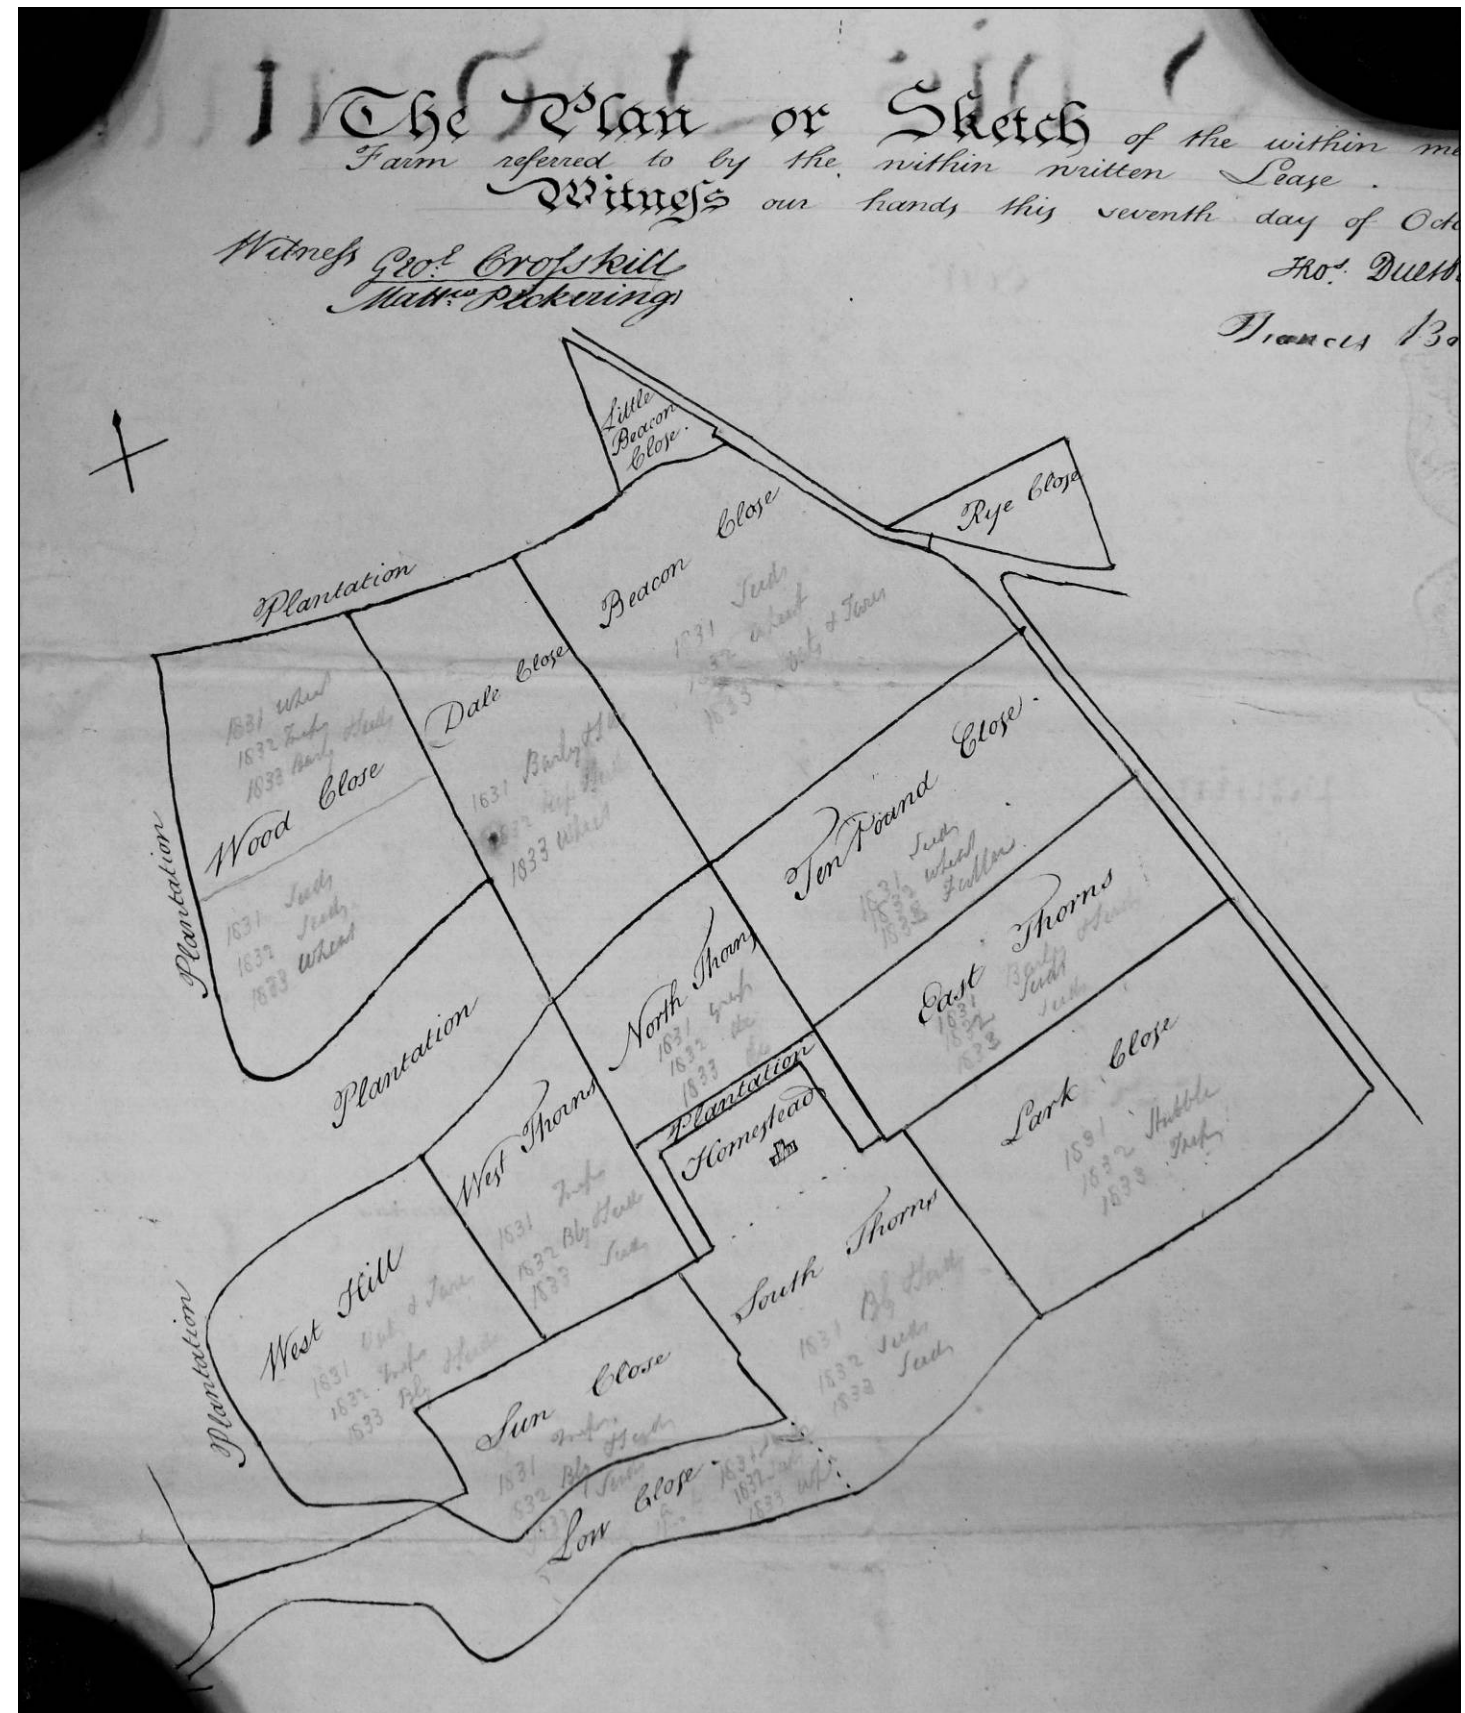 The Plan or Sketch of the within me
Farm referred to by the within written Lease.
Witneſs our hands this seventh day of Octo
Witneſs Geo.e Croſskill
Matt.w Pickering
Tho.s Duesb
Francis Ba
Little
Beacon
Close.
Rye Close
Beacon Close
1831 Seeds
1832 wheat
1833 Oats & Tares
Plantation
Dale Close
1831 Barley & Seeds
1832
1833 Wheat
1831 Wheat
1832 Turnps
1833 Barley & Seeds
Wood Close
1831 Seeds
1832 Seeds
1833 Wheat
Plantation
Ten Pound Close.
1831 Seeds
1832 Wheat
1833 Fallow
East Thorns
1831 Barley & Seeds
1832 Seeds
1833 Seeds
North Thorns
1831 Grass
1832 do
1833 do
Plantation
Plantation
Homestead
Lark Close
1831
1832 Stubble
1833 Turnps
West Thorns
1831 Turnps
1832 Bly & Seeds
1833 Seeds
South Thorns
1831 Bly & Seeds
1832 Seeds
1833 Seeds
West Hill
1831 Oats & Tares
1832 Turnps
1833 Bly & Seeds
Plantation
Sun Close
1831 Turnps
1832 Bly & Seeds
1833 Seeds
Low Close.
1831
1832
1833